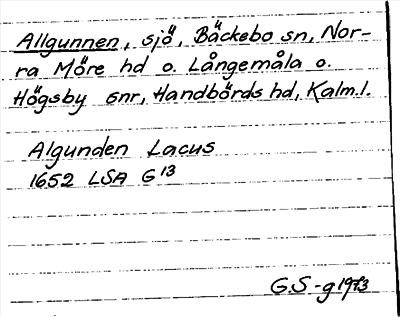 Allgunnen, sjö, Bäckebo sn, Nor-
ra Möre hd o. Långemåla o.
Högsby snr, Handbörds hd, Kalm.l.
Algunden Lacus
1652 LSA G13
G.S-g 1973